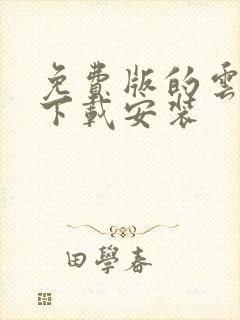 免費版的雲
下載安裝
田學春